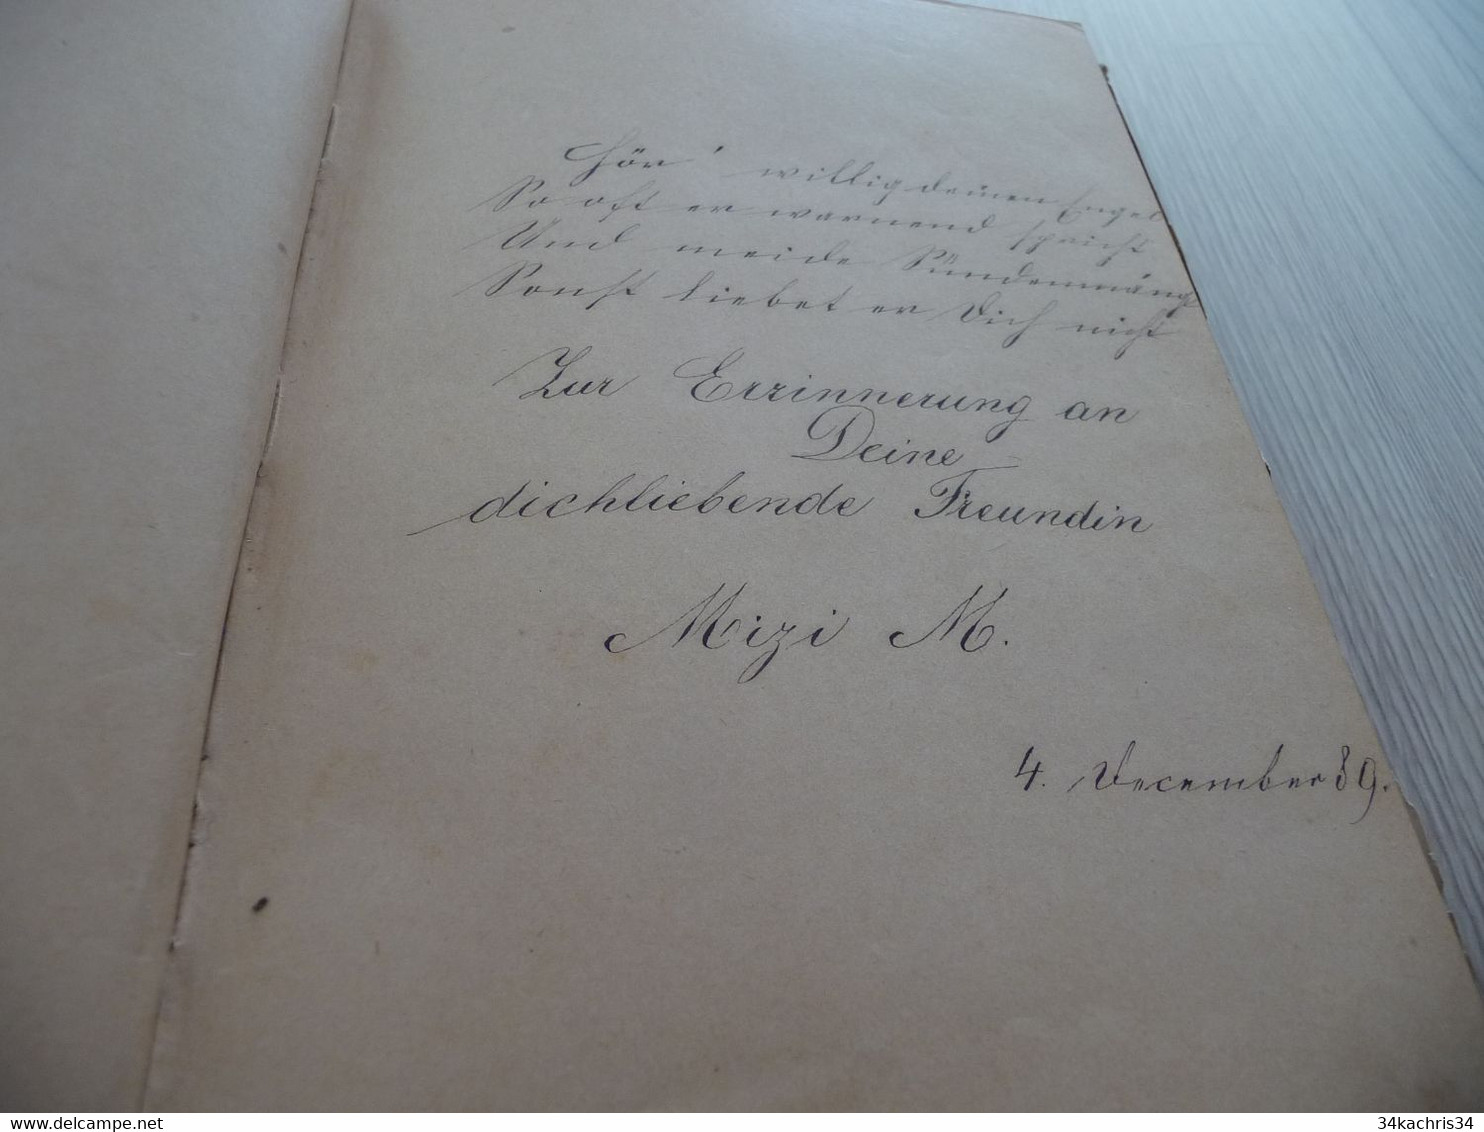 Hör' willig deinen Engel
So oft er warnend spricht
Und meide Sündenmäng
Sonst liebet er Dich nicht
Zur Erzinnerung an
Deine
dichliebende Freundin
Mizi M.
4. December 89.
34kachris34